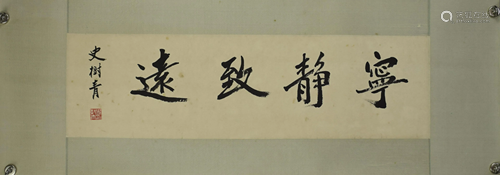 寧靜致遠
史樹青